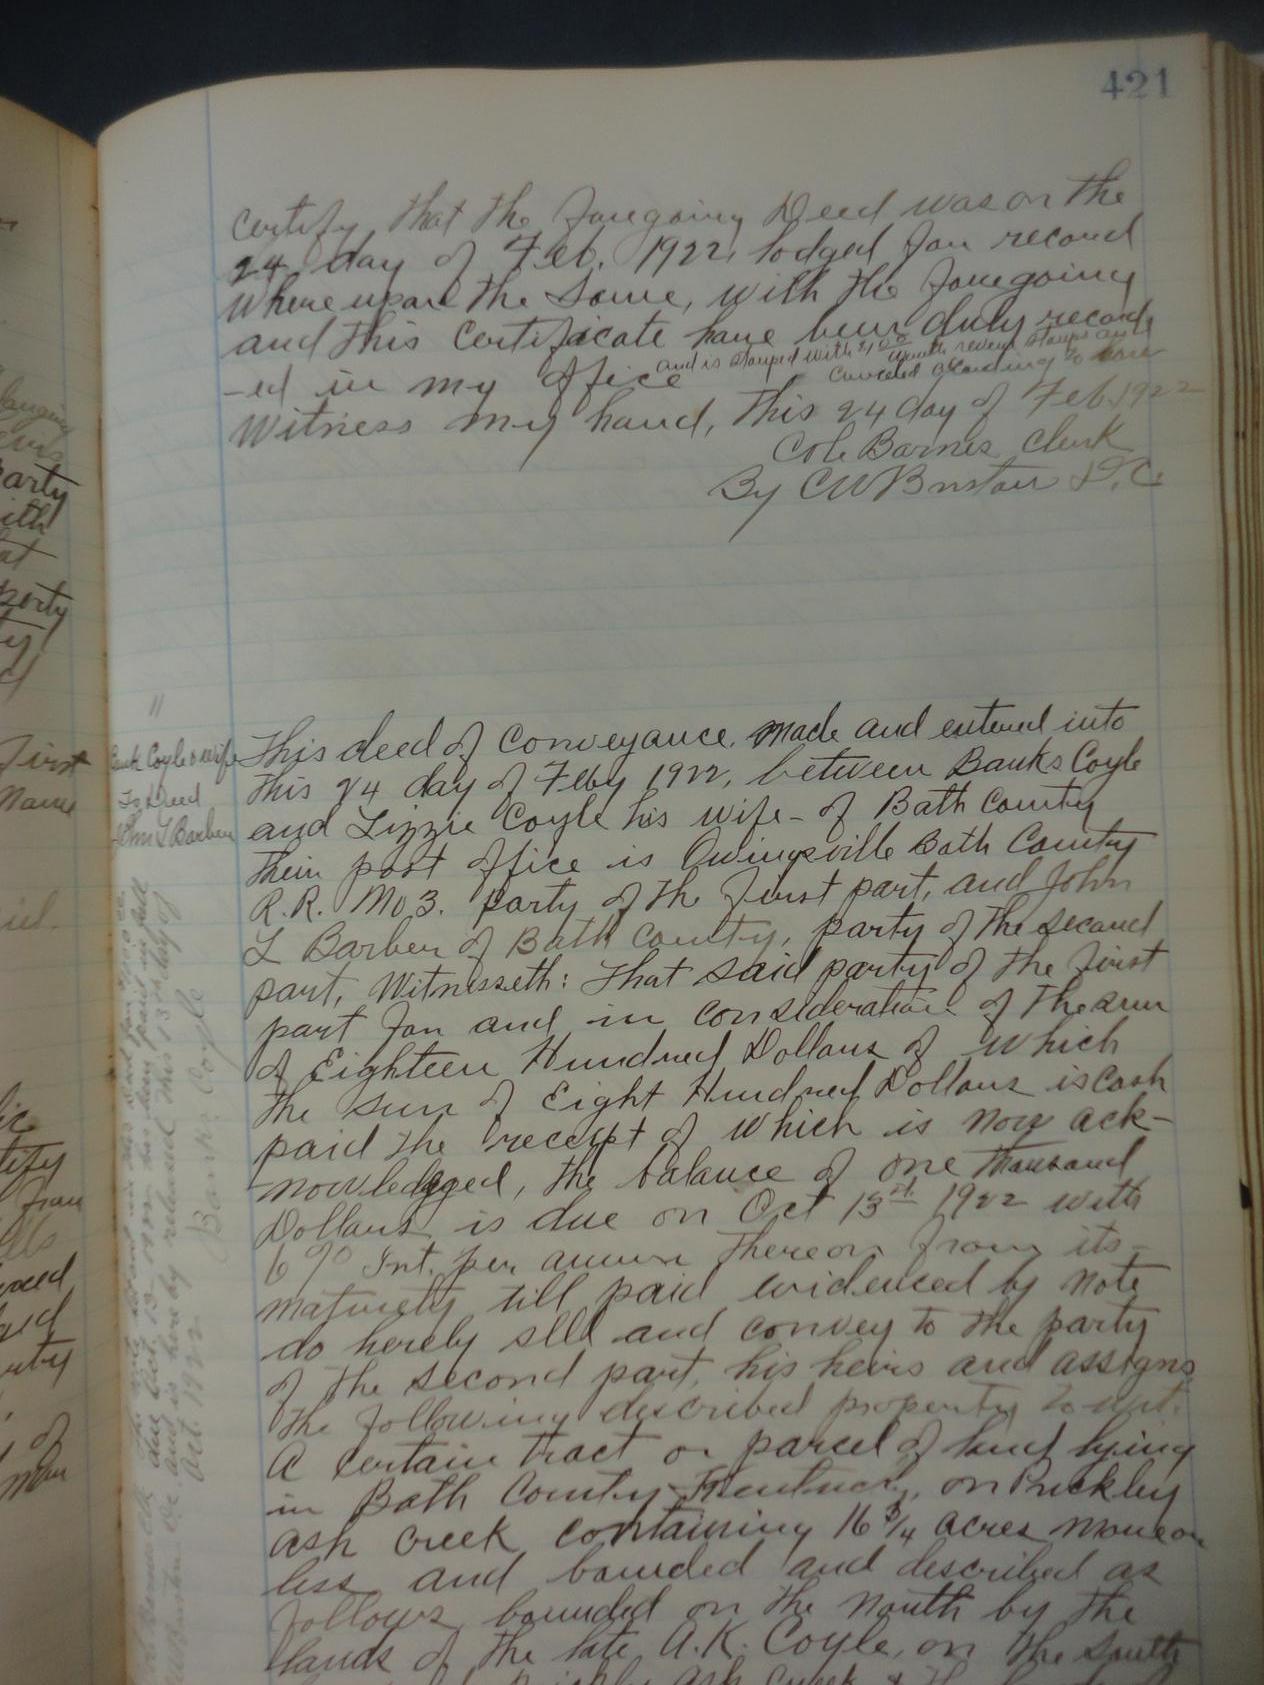 421
certify that the foregoing Deed was on the
24 day of Feb. 1922, lodged for record
whereupon the same, with the foregoing
and this certificate have been duly record
-ed in my office and is stamped with worth revenue stamps and
canceled according to law
Witness my hand, this 24 day of Feb. 1922
Cole Barnes Clerk
By CW D.C.
"
Bank Coyle & wife
To Deed
John L Barber
This deed of Conveyance, made and entered into
this 24 day of Feby 1922, between Banks Coyle
and Lizzie Coyle his wife - of Bath County
their post office is Owingsville Bath County
R.R. No 3. party of the first part, and John
L Barber of Bath County, party of the second
part, Witnesseth: That said party of the first
part for and in consideration of the sum
of Eighteen Hundred Dollars of which
the sum of Eight Hundred Dollars is cash
paid the receipt of which is now ack-
nowledged, the balance of one thousand
Dollars is due on Oct 13 1922 with
6% Int. per annum thereon from its
maturety till paid evidenced by note
do hereby sell and convey to the party
of the second part, his heirs and assigns
the following described property to wit.
A certain tract or parcel of land lying
in Bath County Kentucky, on Prickley
Ash Creek containing 16 3/4 acres more or
less and bounded and described as
follows bounded on the North by the
lands of the late A.K. Coyle, on the South
Ash Creek
due Oct. 13- 1922 has been paid in full
and is here by released this 13th day of
Oct. 1922 Banks Coyle
First
Name
party